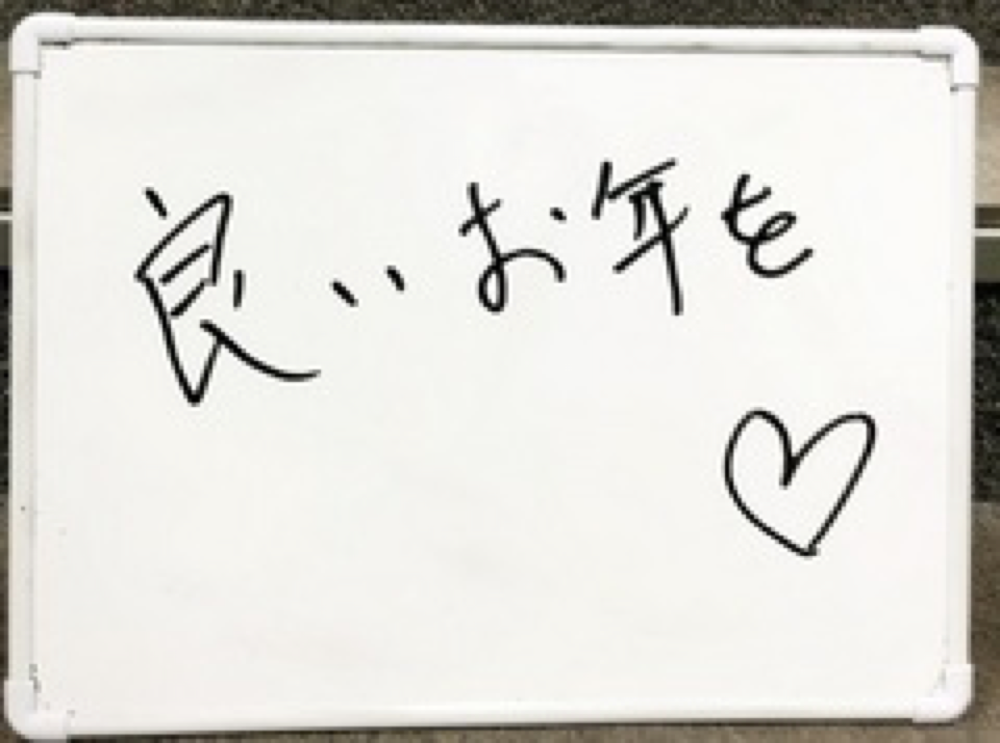 良いお年を
♡